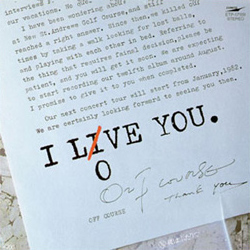 our vocations. No
I have been wondering about
at New St. Andrews Golf Course, and still
reached a right answer. Since then, he killed our
times by taking a walk looking for lost balls,
and playing with each other in bed. Referred to
the pieces that require animal decision, please be
patient, and you will get it soon. We are expecting
start recording our twelfth album around august.
I promise to give it to you when completed.
Our next concert tour will start from january, 1982.
We are certainly looking forward to seeing you then.
I LIVE YOU.
O
OFF COURSE
THANK YOU
OFF COURSE